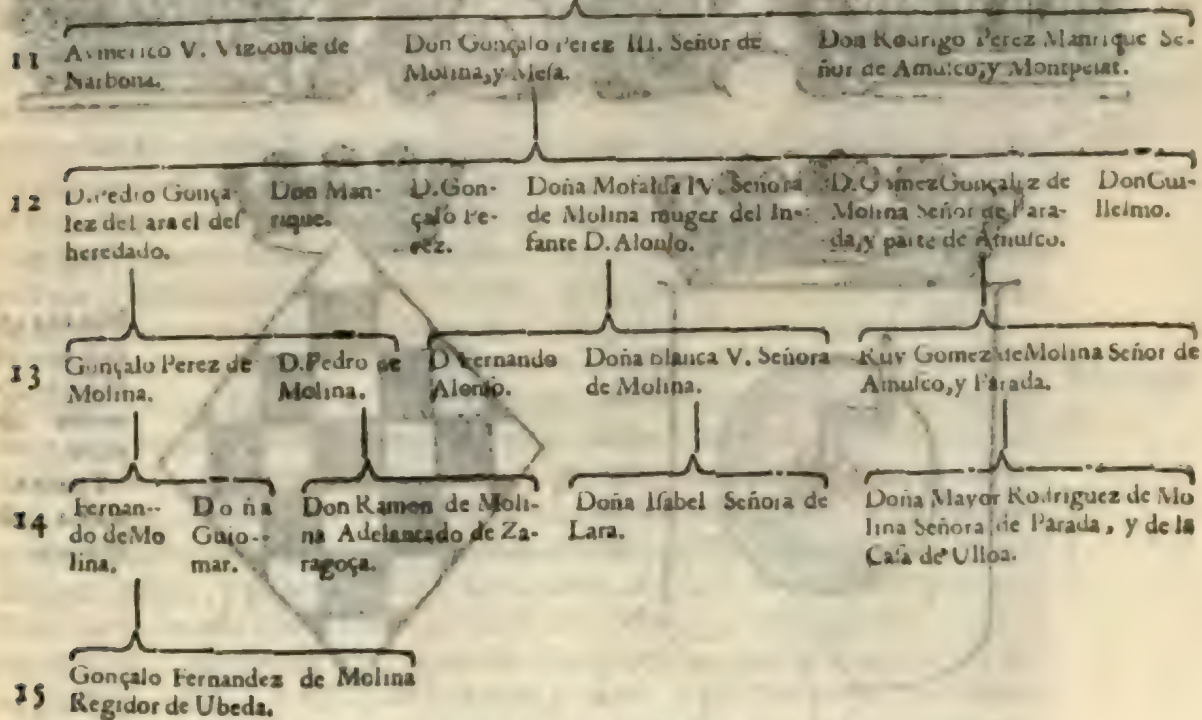 11 Aymerico V. Vizconde de
Narbona.
Don Gonçalo Perez III. Señor de
Molina, y Mesa.
Don Rodrigo Perez Manrique Se-
ñor de Amusco, y Montpesat.
12 D. Pedro Gonça-
lez del
heredado.
Don Man-
rique.
D. Gon-
çalo Pe-
rez.
Doña Mofalda IV. Señora
de Molina muger del In-
fante D. Alonso.
D. Gomez Gonçalez de
Molina Señor de Para-
da, y parte de Amusco.
Don Gui-
llelmo.
13 Gonçalo Perez de
Molina.
D. Pedro de
Molina.
D Fernando
Alonso.
Doña blanca V. Señora
de Molina.
Ruy Gomez de Molina Señor de
Amusco, y Parada.
14 Fernan--
do de Mo
lina.
Doña
Guio--
mar.
Don Ramon de Moli-
na Adelantado de Za-
ragoça.
Doña Isabel Señora de
Lara.
Doña Mayor Rodriguez de Mo
lina Señora de Parada, y de la
Casa de Ulloa.
15 Gonçalo Fernandez de Molina
Regidor de Ubeda.